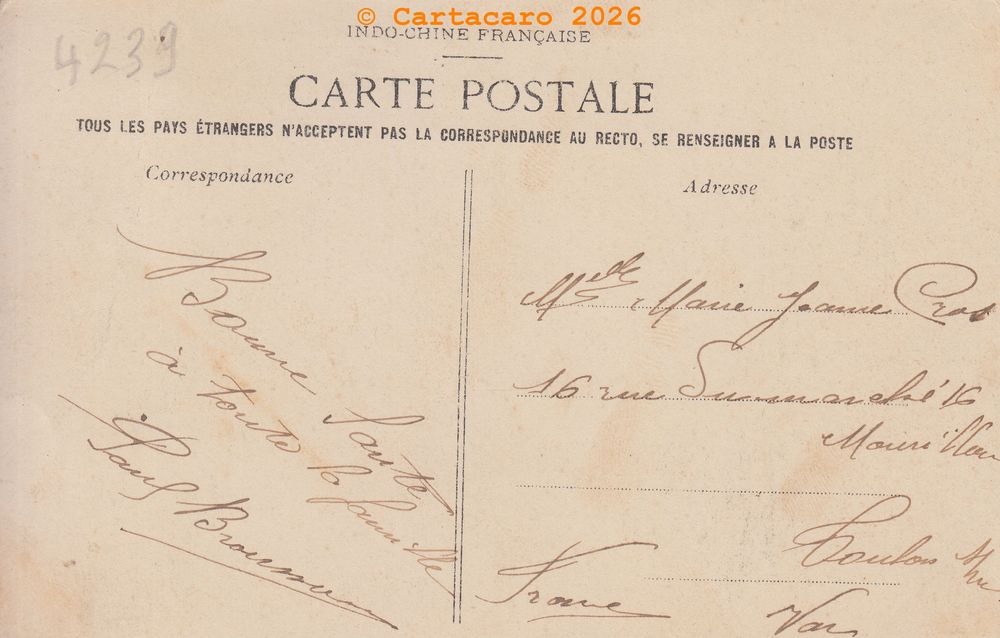 © Cartacaro 2026
4239
INDO-CHINE FRANÇAISE
CARTE POSTALE
TOUS LES PAYS ÉTRANGERS N'ACCEPTENT PAS LA CORRESPONDANCE AU RECTO, SE RENSEIGNER A LA POSTE
Correspondance
Bonne Santé
à toute la famille
Paul
Adresse
Mlle Marie Jeanne Cros
16 rue 16
Mourillon
Toulon
France Var